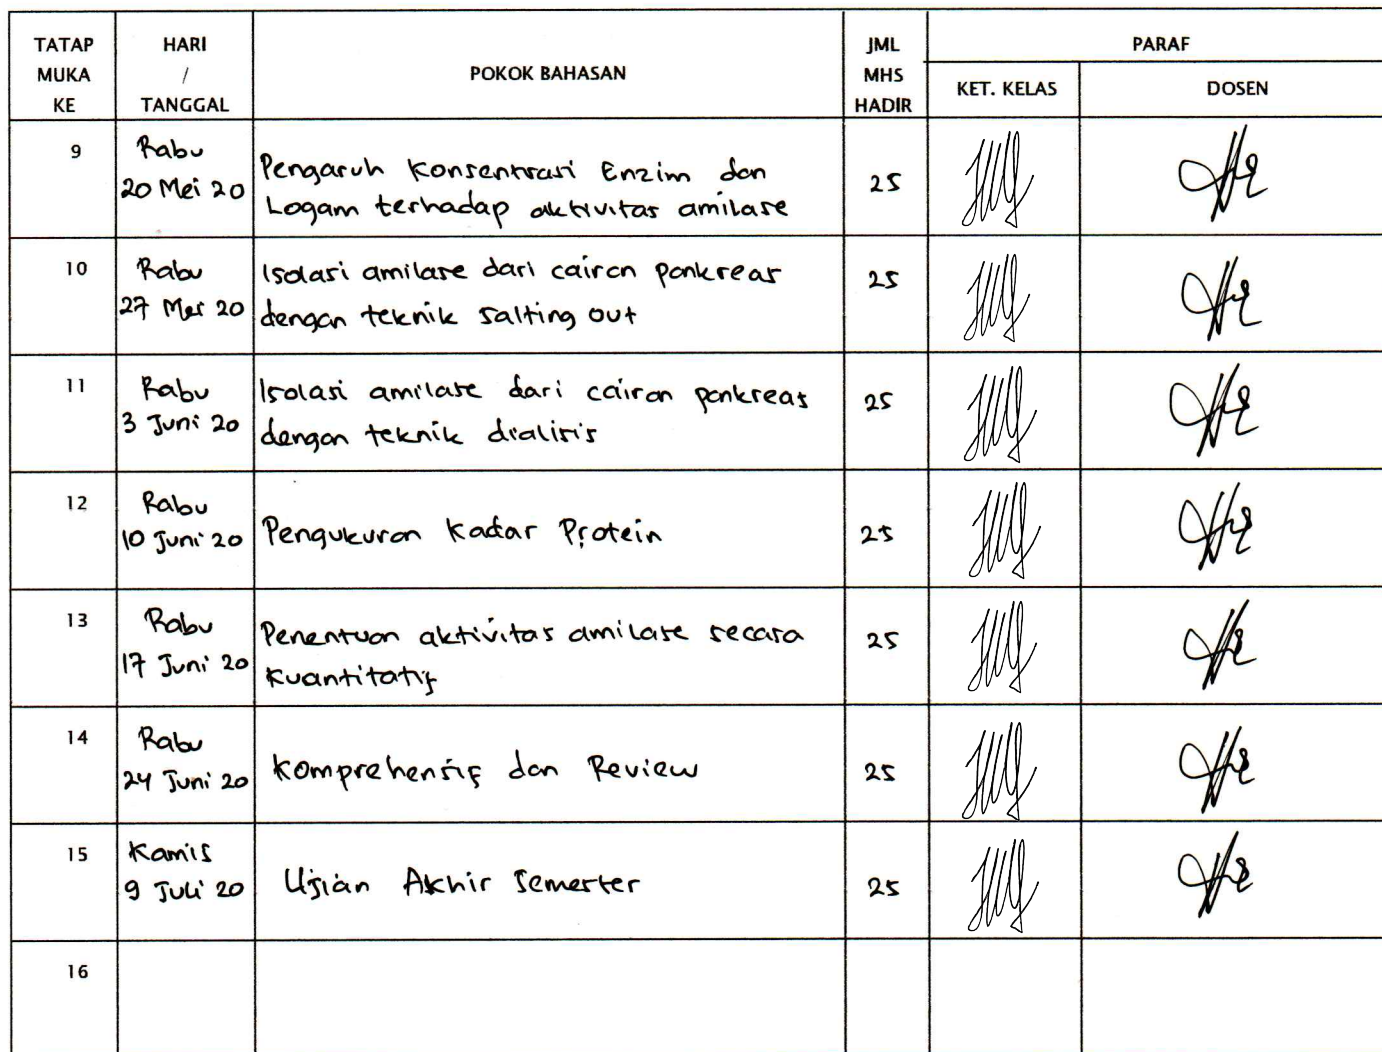 TATAP MUKA KE
HARI / TANGGAL
POKOK BAHASAN
JML MHS HADIR
PARAF
KET. KELAS
DOSEN
9
Rabu
20 Mei 20
Pengaruh Konsentrasi Enzim dan
Logam terhadap aktivitas amilase
25
10
Rabu
27 Mei 20
Isolasi amilase dari cairan pankreas
dengan teknik salting out
25
11
Rabu
3 Juni 20
Isolasi amilase dari cairan pankreas
dengan teknik dialisis
25
12
Rabu
10 Juni 20
Pengukuran Kadar Protein
25
13
Rabu
17 Juni 20
Penentuan aktivitas amilase secara
kuantitatif
25
14
Rabu
24 Juni 20
Komprehensif dan Review
25
15
Kamis
9 Juli 20
Ujian Akhir Semester
25
16